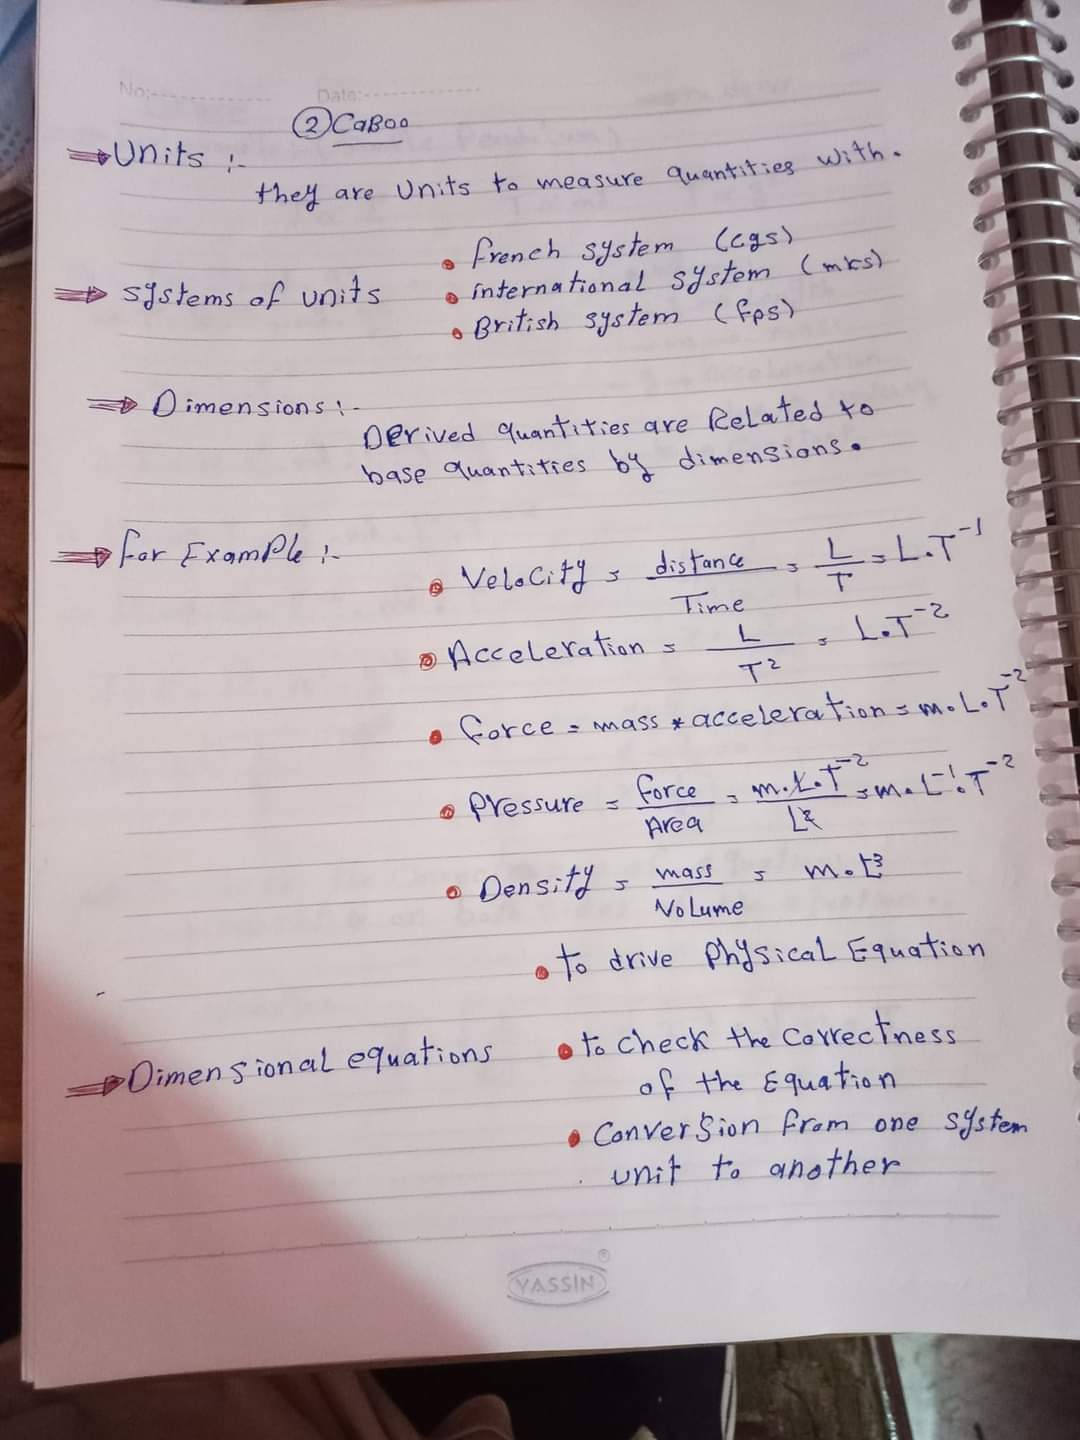 No:- Date:-
② CaBoo
⇒ Units :-
they are Units to measure quantities with.
• french system (cgs)
⇒ systems of units • international system (mks)
• British system (fps)
⇒ Dimensions :-
Derived quantities are Related to
base quantities by dimensions.
⇒ for Example :-
• Velocity = distance/Time = L/T = L.T⁻¹
• Acceleration = L/T² = L.T⁻²
• force = mass * acceleration = m.L.T⁻²
• Pressure = force/Area = m.L.T⁻²/L² = m.L⁻¹.T⁻²
• Density = mass/Volume = m.L⁻³
• to drive Physical Equation
⇒ Dimensional equations • to check the Correctness
of the Equation
• Conversion from one system
unit to another
YASSIN®